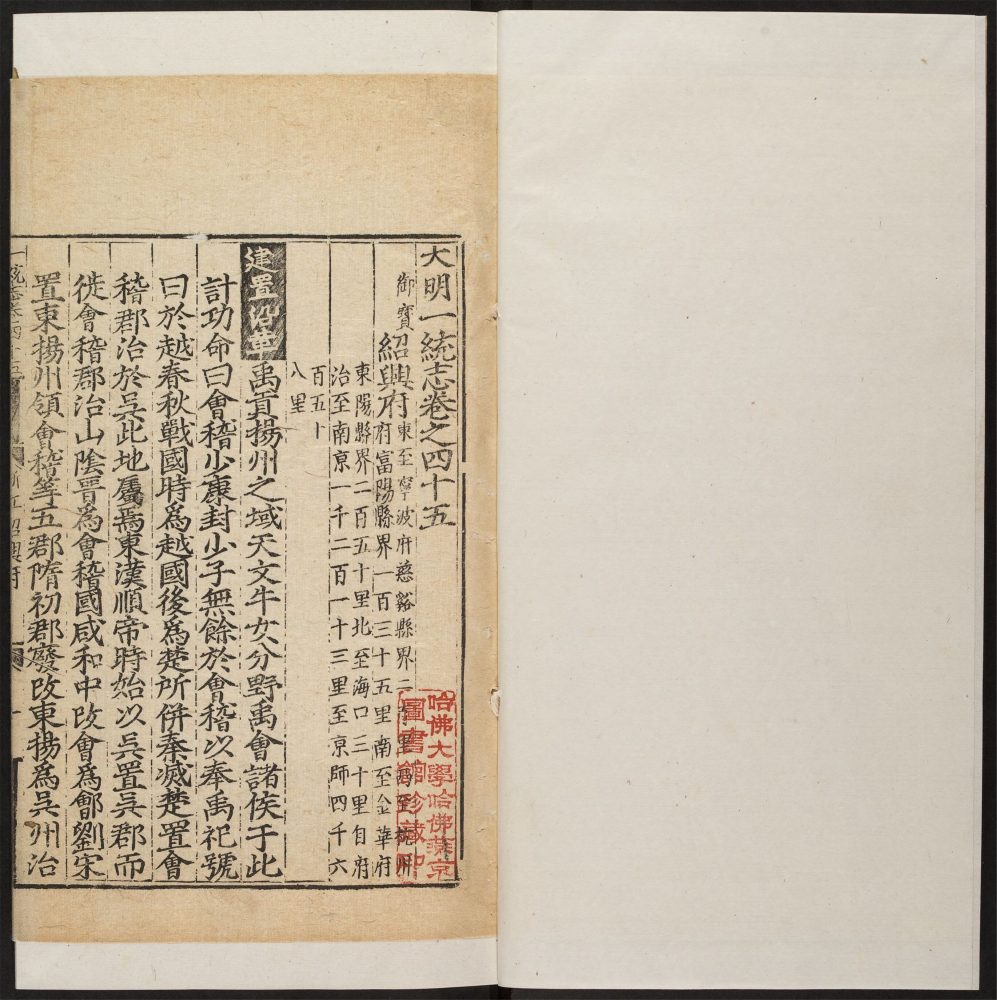 大明一統志卷之四十五
御寶
紹興府
東至寧波府慈谿縣界二十里西至杭州
府富陽縣界一百三十五里南至金華府
東陽縣界二百五十里北至海口三十里自府
治至南京一千二百一十三里至京師四千六
百五十
八里
建置沿革 禹貢揚州之域天文牛女分野禹會諸侯于此
計功命曰會稽少康封少子無餘於會稽以奉禹祀號
曰於越春秋戰國時爲越國後爲楚所併秦滅楚置會
稽郡治於吳此地屬焉東漢順帝時始以吳置吳郡而
徙會稽郡治山陰晉爲會稽國咸和中改會爲鄶劉宋
置東揚州領會稽等五郡隋初郡廢改東揚爲吳州治
一統志卷之四十五 浙江紹興府 一
哈佛大學哈佛燕京
圖書館珍藏印